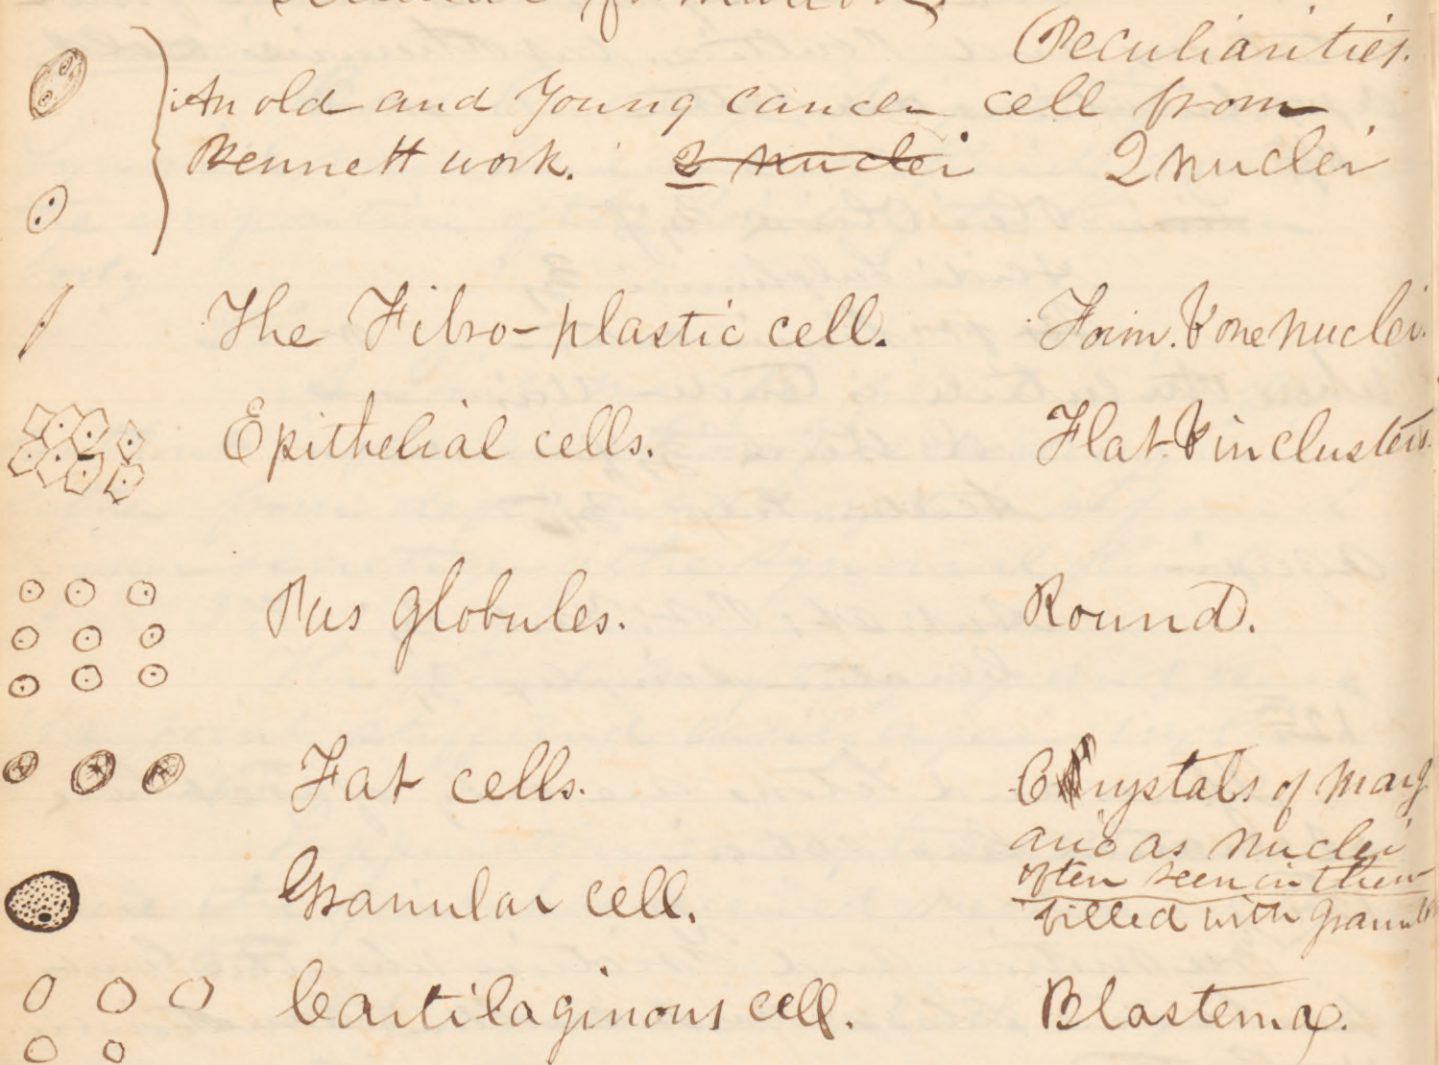 formation.
Peculiarities.
An old and Young cancer cell from
Bennett work. 2 nuclei 2 nuclei
The Fibro-plastic cell. Form. & one nuclei.
Epithelial cells. Flat & in clusters.
Pus globules. Round.
Fat cells. Crystals of marg
aric as nuclei
often seen in them
Granular cell. filled with
Cartilaginous cell. Blastema.